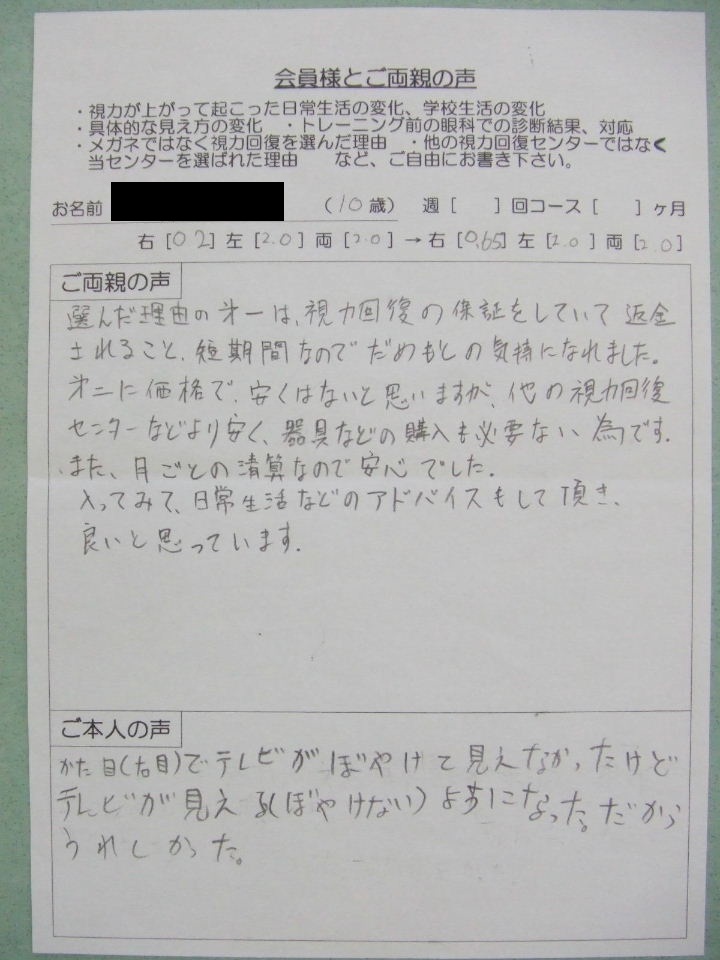 会員様とご両親の声
・視力が上がって起こった日常生活の変化、学校生活の変化
・具体的な見え方の変化　・トレーニング前の眼科での診断結果、対応
・メガネではなく視力回復を選んだ理由　・他の視力回復センターではなく
当センターを選ばれた理由　など、ご自由にお書き下さい。
お名前　（10歳）　週［　］回コース［　］ヶ月
右［02］左［2.0］両［2.0］→右［0.65］左［2.0］両［2.0］
ご両親の声
選んだ理由の才一は、視力回復の保証をしていて返金
されること、短期間なのでだめもとの気持になれました。
才二に価格で、安くはないと思いますが、他の視力回復
センターなどより安く、器具などの購入も必要ない為です。
また、月ごとの清算なので安心でした。
入ってみて、日常生活などのアドバイスもして頂き、
良いと思っています。
ご本人の声
かた目（右目）でテレビがぼやけて見えなかったけど
テレビが見える（ぼやけない）ようになった。だから
うれしかった。